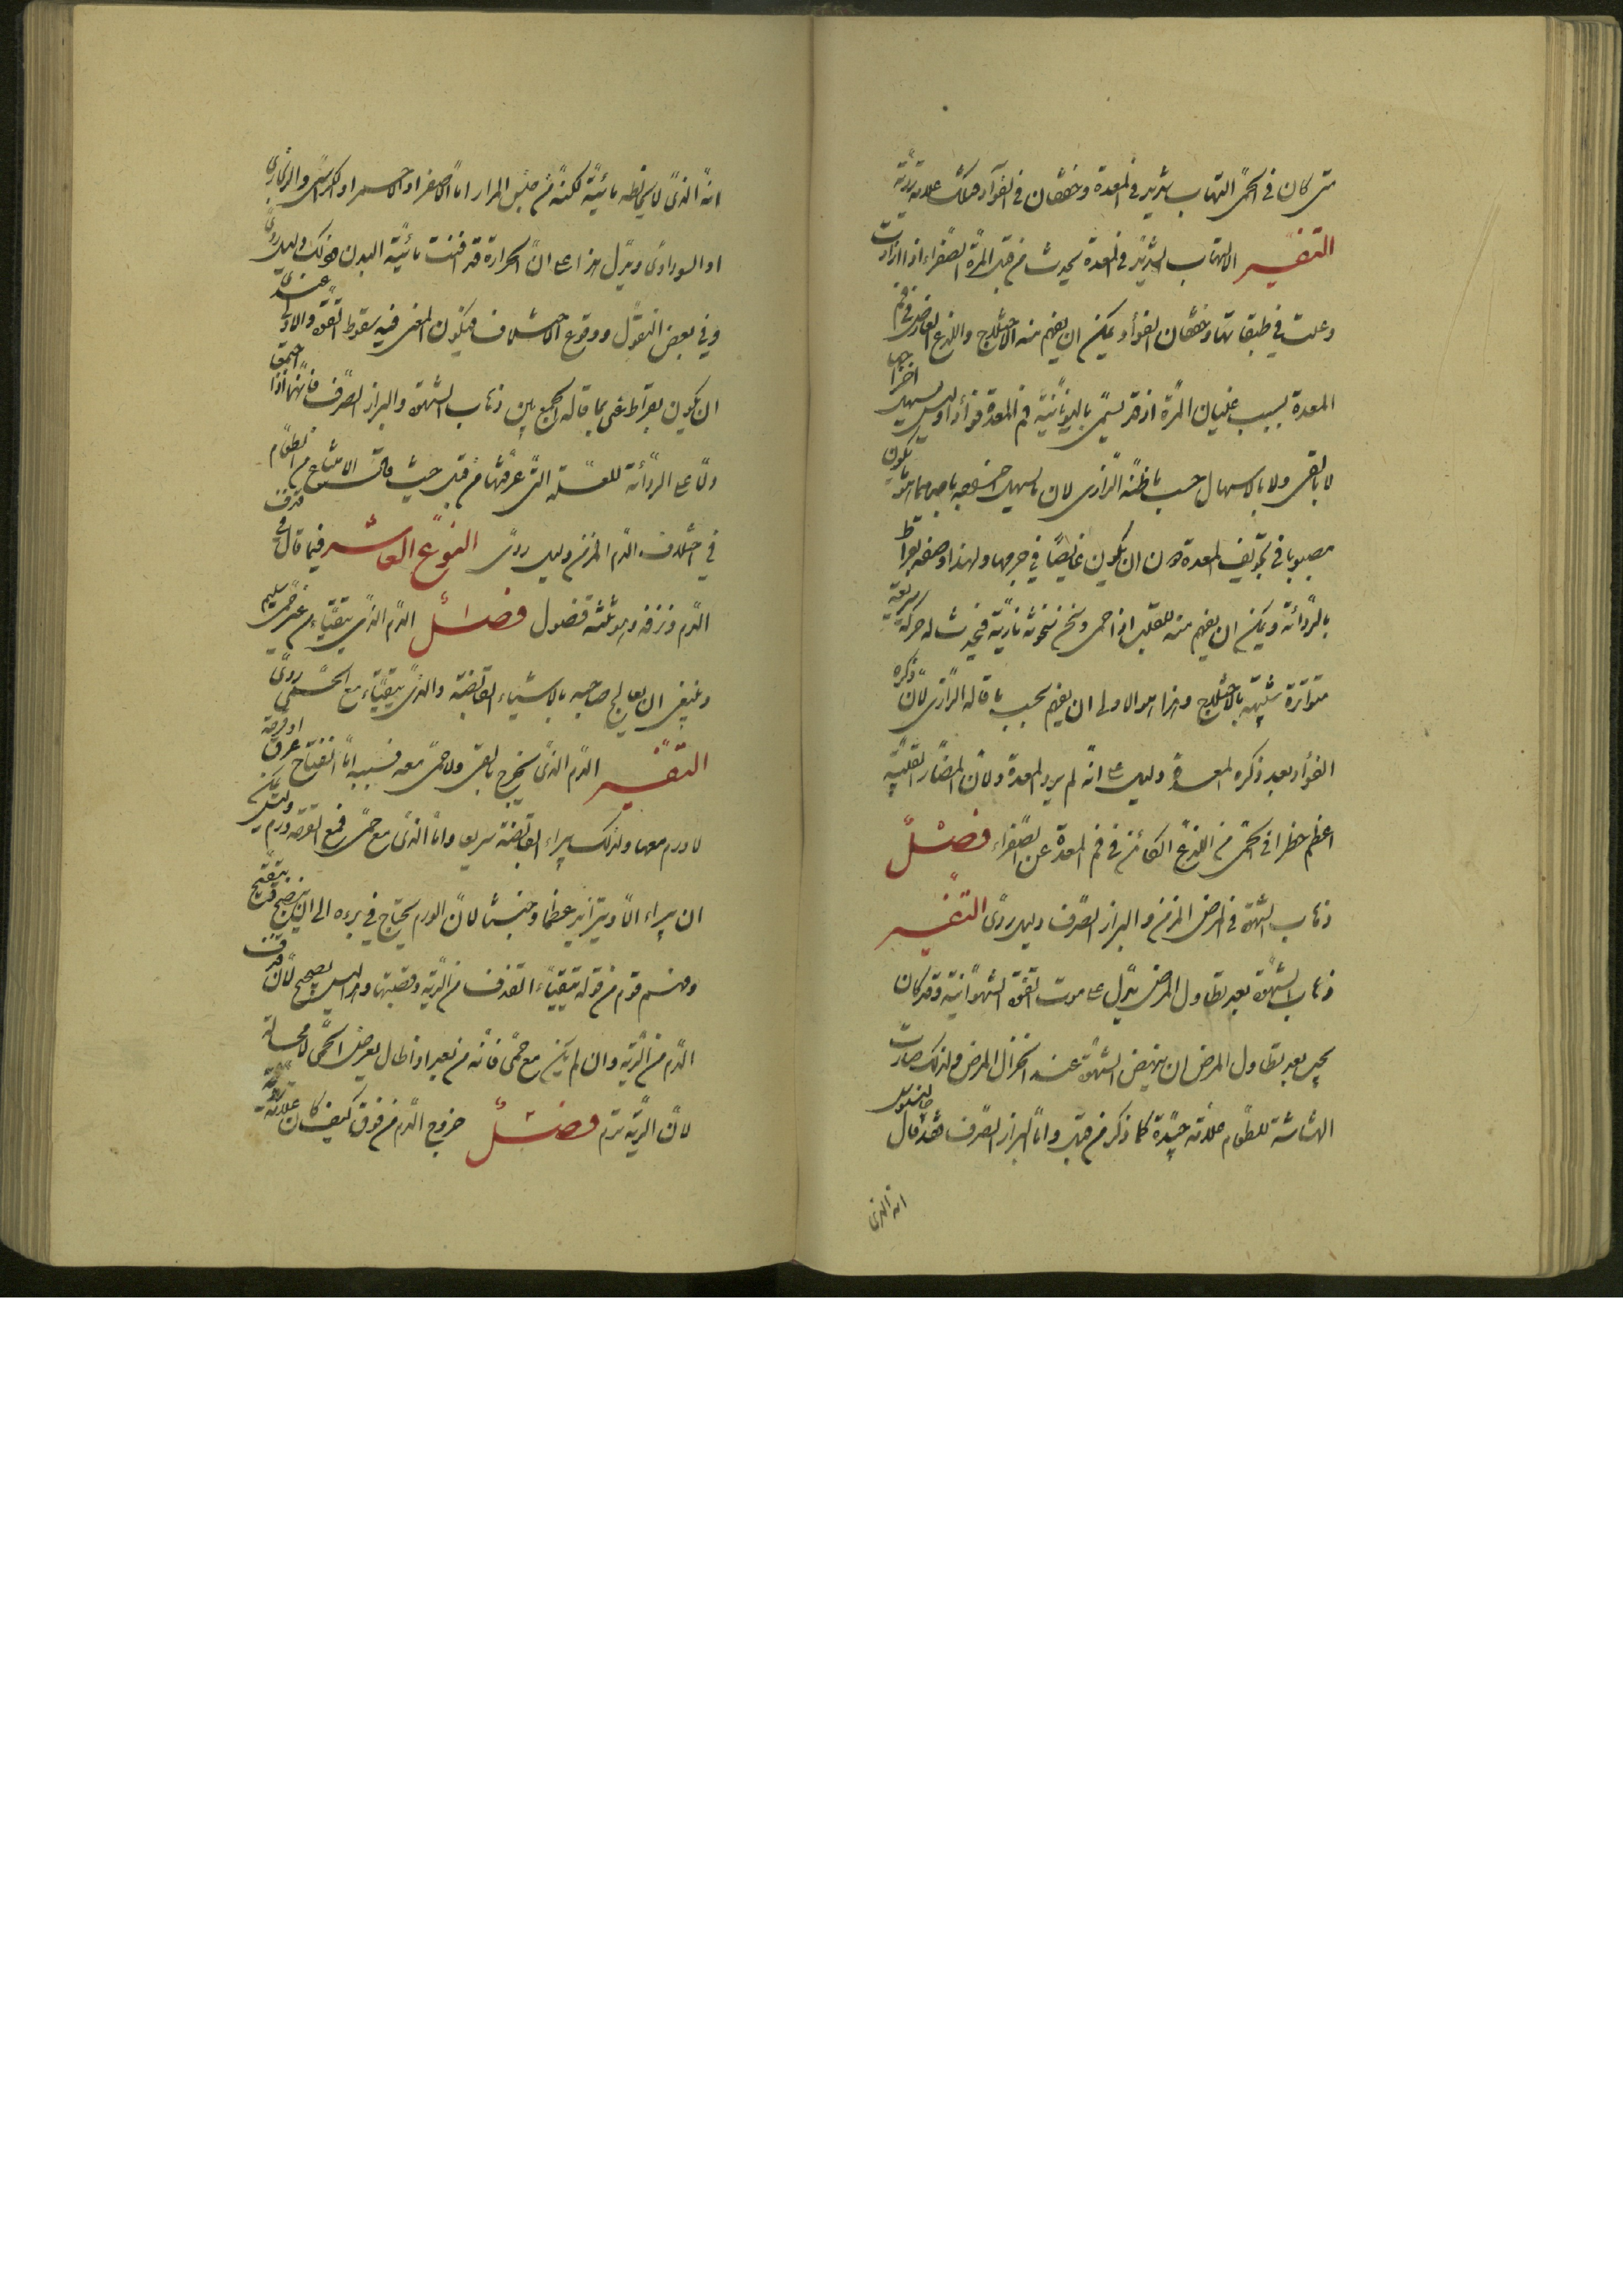 متى كان فى الحمّى التهاب شديد فى المعدة وخفقان فى الفؤاد فتلك علامة رديّة
التفسير الالتهاب الشديد فى المعدة يحدث من قبل المرّة الصّفراء اذا ازدادت
وغلت فى طبقاتها وخفقان الفؤاد يمكن ان يفهم منه الاختلاج واللذع العارض فى فم
المعدة بسبب غليان المرّة اذ قد يسمّى باليونانيّة فم المعدة فؤادا وليس يسهل اخراجها
لا بالقى ولا بالاسهال حسب ما ظنّه الرّازى لان ما يسهل خروجه باحدهما هو ما يكون
مصبوبا فى تجويف المعدة دون ان يكون غايصا فى جرمها ولهذا وصفه بقراط
بالرّدائة ويمكن ان يفهم منه القلب اذا حمى وسخن سخونة ناريّة فيحدث له حركة سريعة
متواترة شبيهة بالاختلاج وهذا هو الاولى ان يفهم بحسب ما قاله الرّازى لانّ ذكره
الفؤاد بعد ذكره المعدة دليل على انّه لم يرد المعدة ولانّ المضارّ القلبيّة
اعظم خطرا فى الحمّى من اللذع الكائن فى فم المعدة عن الصّفراء فصل
ذهاب الشهوة فى المرض المزمن والبراز الصّرف دليل ردىّ التفسير
ذهاب الشهوة بعد تطاول المرض يدّل على موت القوّة الشهوانيّة وقد كان
يجب بعد تطاول المرض ان ينهض الشهوة عند انخزال المرض ولذلك صارت
الهشاشة للطّعام علامة جيّدة كما ذكر من قبل وامّا البراز الصّرف فقد قال جالينوس
انه الذى
انّه الذى لا يخالطه مائيّة لكنّه من جنس المرار امّا الاصفر او الاحمر او الكرّاثى والزنجارى
او السوداوى ويدّل هذا على انّ الحرارة قد افنت مائيّة البدن فذلك دليل ردىّ
وفى بعض النقول ووقوع الاختلاف فيكون المعنى فيه سقوط القوّة والاولى عندى
ان يكون بقراط عنى بما قاله الجمع بين ذهاب الشهوة والبراز الصّرف فانّهما اذا اجتمعا
دلّا على الردائة للعلّة التى عرفتها من قبل حيث قلت الامتناع من الطّعام
فى اختلاف الدّم المزمن دليل ردىّ النوع العاشر فيما قال فى قذف
الدّم ونزفه وهو ثلثة فصول فصل الدّم الذى يتقيّاء من غير حمّى سليم
وينبغى ان يعالج صاحبه بالاشياء القابضة والذى يتقيّاء مع الحمّى ردىّ
التفسير الدّم الذى يخرج بالقى ولا حمّى معه فسببه امّا انفتاح عرق او قرحة
لا ورم معها ولذلك يبراء بالقابضة سريعا وامّا الذى مع حمّى فمع القرحة ورم وليس يمكن
ان يبراء الّا ويتزايد عظما وخبثا لانّ الورم يحتاج فى برءه الى ان ينضج قيح يتقيّح
ومنهم قوم من قوله يتقيّاء القذف من الرّية وقصبتها وليس بصحيح لانّ قذف
الدّم من الرّية وان لم يكن مع حمّى فانّه من بعد اذا طال يعرض الحمّى لا محالة
لانّ الرّية ترم فصل خروج الدّم من فوق كيف كان علامة رديّة